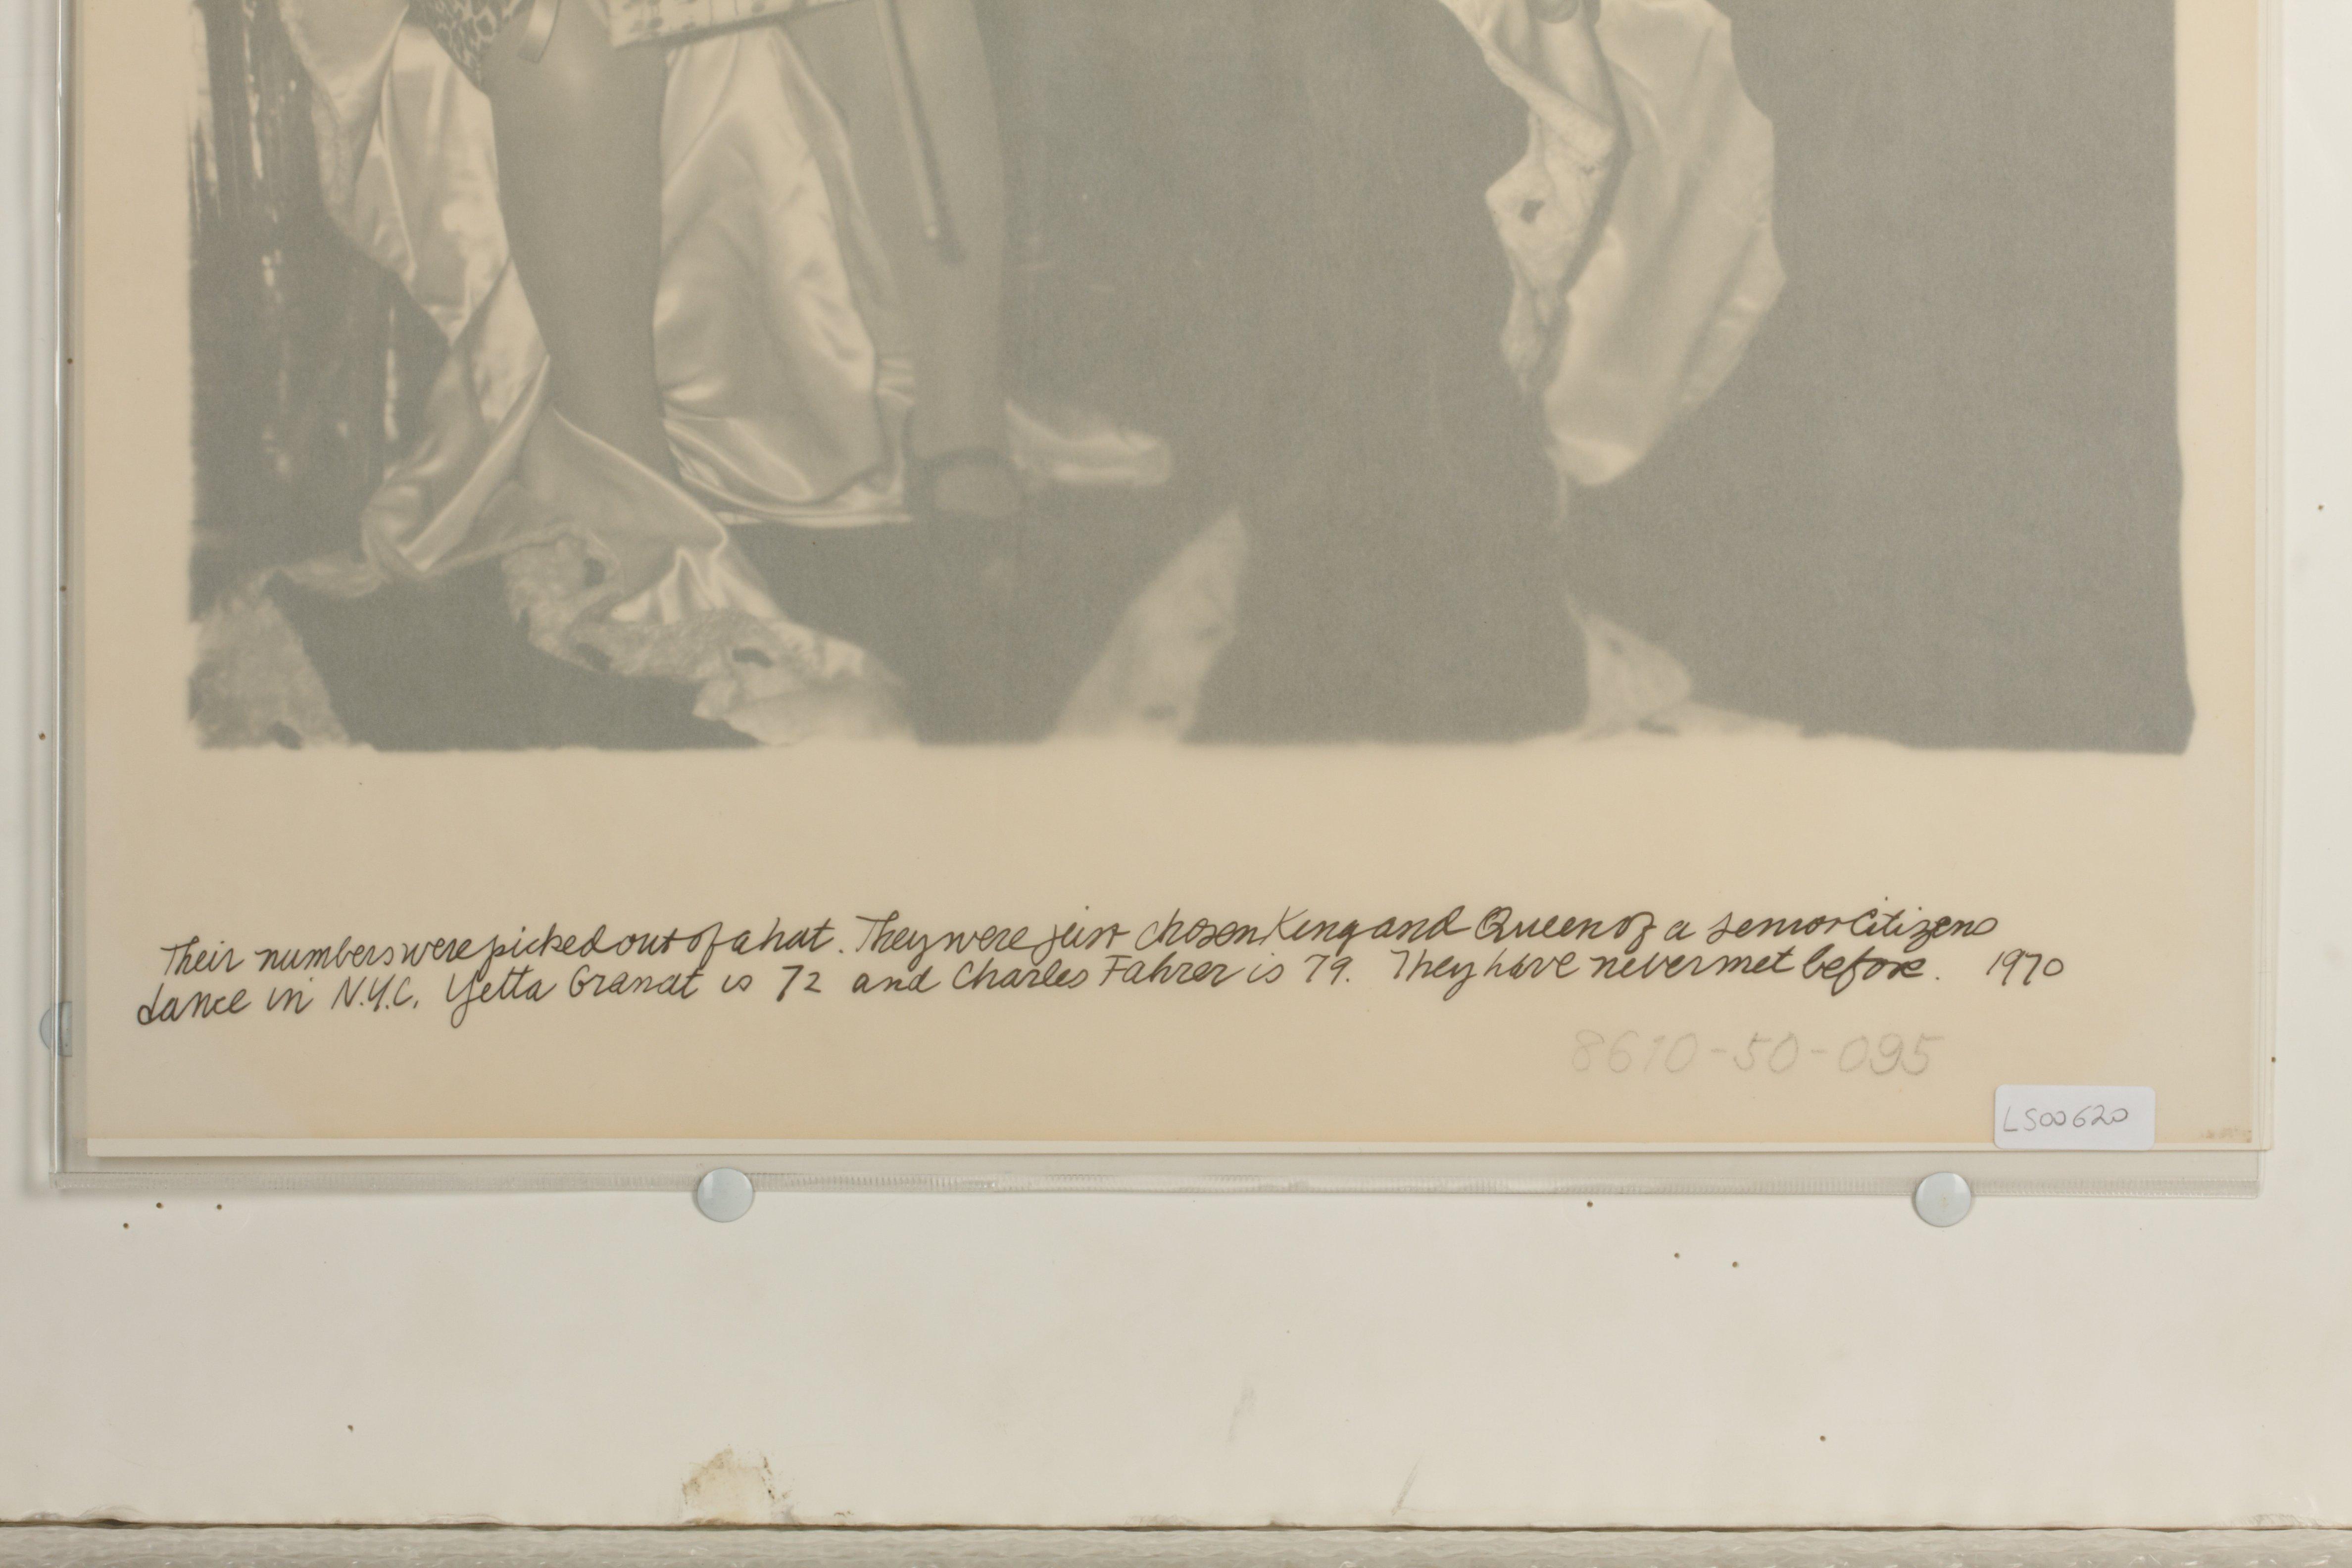 Their numbers were picked out of a hat. They were just chosen King and Queen of a senior Citizens
dance in N.Y.C. Yetta Granat is 72 and Charles Fahrer is 79. They have never met before. 1970
8610-50-095
LS00620